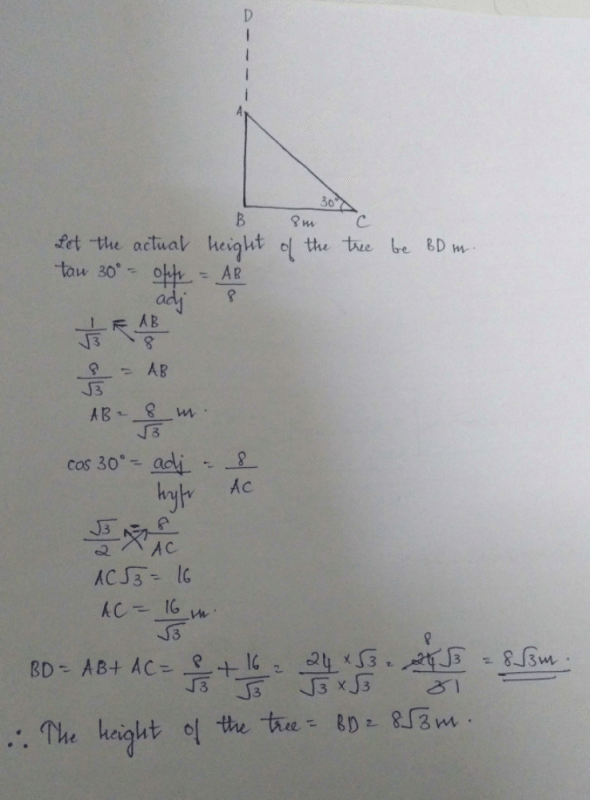 D
A
30°
B 8m C
Let the actual height of the tree be BD m.
tan 30° = opp/adj = AB/8
1/√3 = AB/8
8/√3 = AB
AB = 8/√3 m.
cos 30° = adj/hyp = 8/AC
√3/2 = 8/AC
AC√3 = 16
AC = 16/√3 m.
BD = AB + AC = 8/√3 + 16/√3 = 24 × √3/√3 × √3 = 8 24√3/3 1 = 8√3 m.
∴ The height of the tree = BD = 8√3 m.